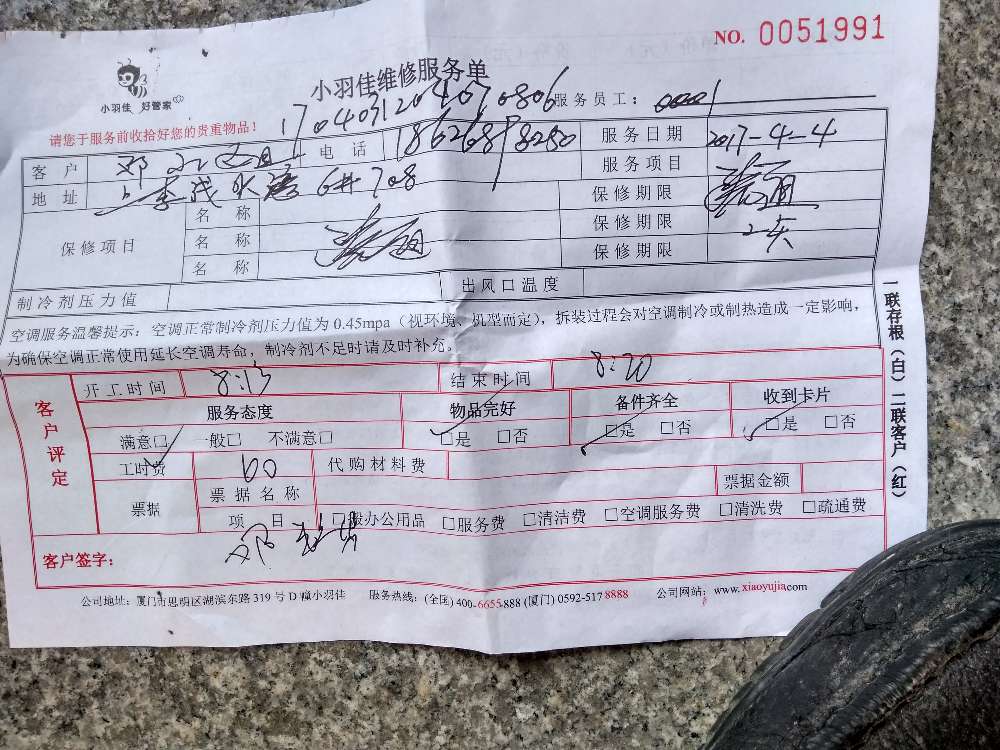 NO. 0051991
小羽佳 好管家
小羽佳维修服务单
1704031204070806
服务员工: 00001
请您于服务前收拾好您的贵重物品!
客户 邓 电话 18626898280 服务日期 2017-4-4
地址 水 6# 708 服务项目
保修项目 名称 保修期限
名称 保修期限
名称 保修期限
制冷剂压力值 出风口温度
空调服务温馨提示: 空调正常制冷剂压力值为 0.45mpa (视环境、机型而定), 拆装过程会对空调制冷或制热造成一定影响,
为确保空调正常使用延长空调寿命, 制冷剂不足时请及时补充。
一联存根(白)二联客户(红)
客户评定
开工时间 8:13 结束时间 8:20
服务态度 物品完好 备件齐全 收到卡片
满意□ 一般□ 不满意□ □是 □否 □是 □否 □是 □否
工时费 60 代购材料费
票据 票据名称 票据金额
项目 □服办公用品 □服务费 □清洁费 □空调服务费 □清洗费 □疏通费
客户签字:
公司地址: 厦门市思明区湖滨东路 319 号 D 幢小羽佳 服务热线: (全国) 400-6655-888 (厦门) 0592-517 8888 公司网站: www.xiaoyujia.com